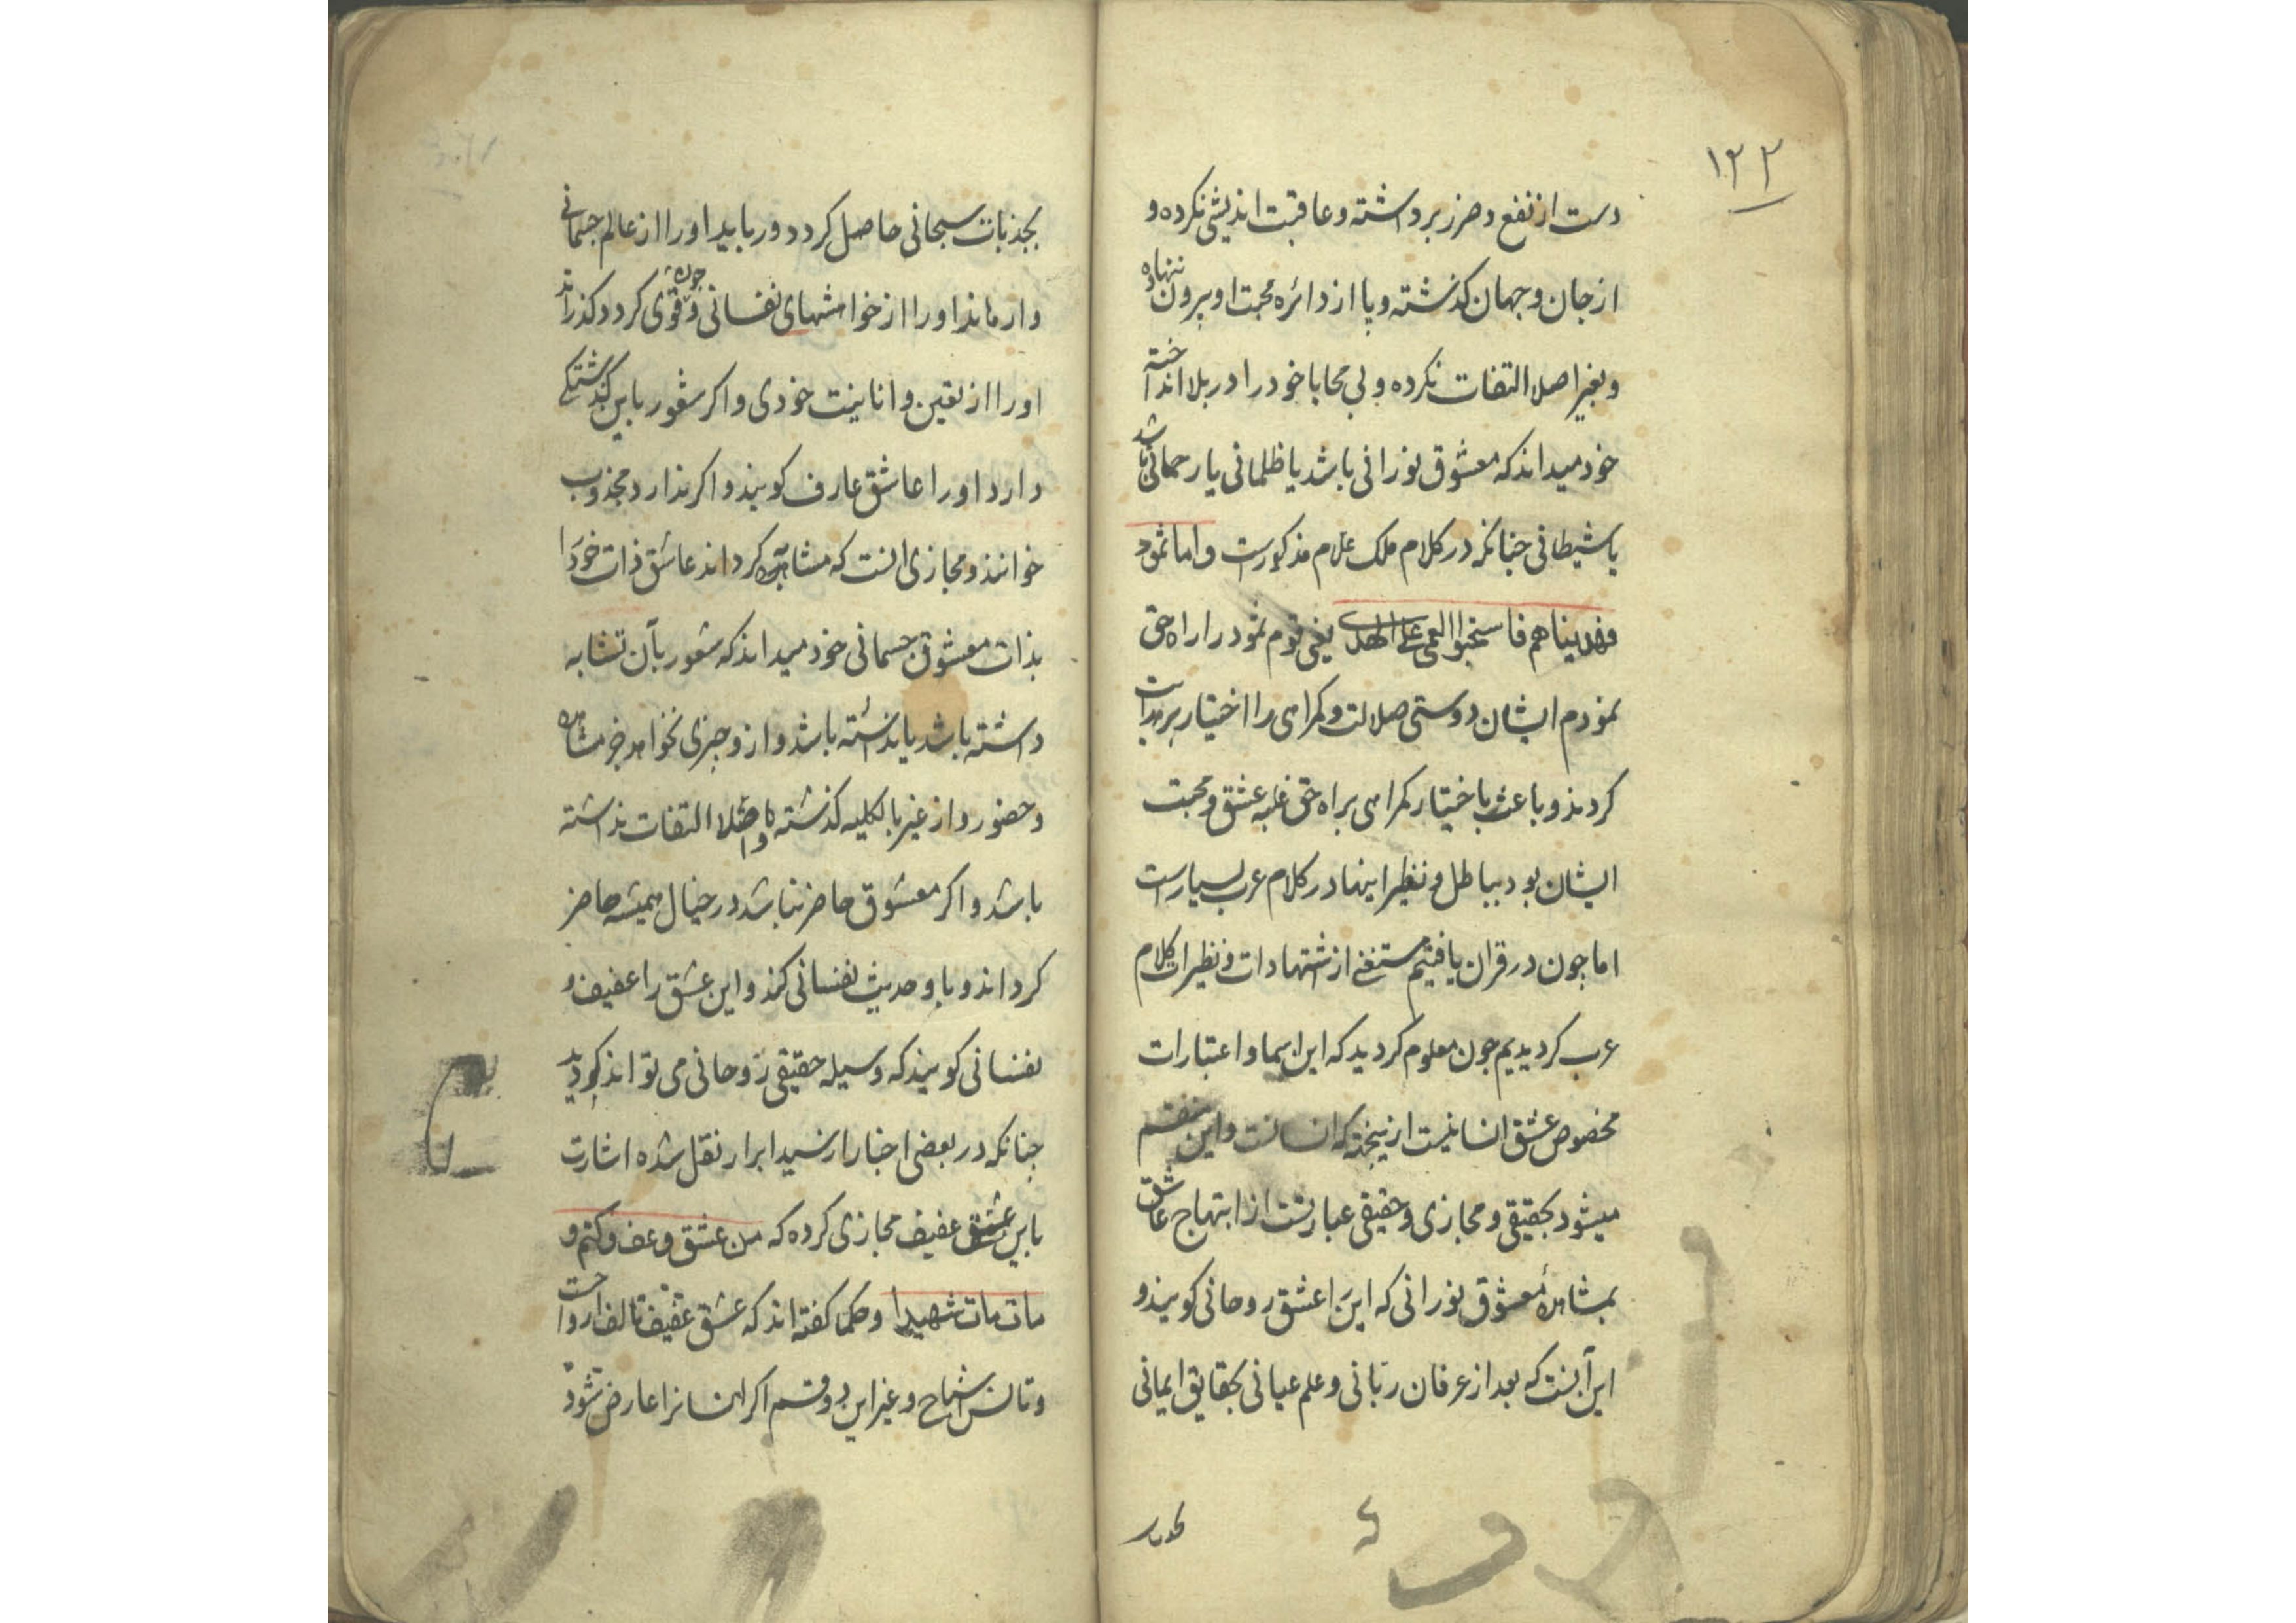 ۱۲۲
دست از نفع و ضرر برداشته و عاقبت اندیشی نکرده و
از جان و جهان کذشته و پا از دائره محبت او بیرون ننهاده
و بغیر اصلا التفات نکرده و بی محابا خود را در بلا انداخته
خود میداند که معشوق نورانی باشد یا ظلمانی یا رحمانی باشد
یا شیطانی چنانکه در کلام ملک علام مذکورست و اما ثمود
فهدیناهم فاستحبوا العمی علی الهدی یعنی قوم ثمود را راه حق
نمودم ایشان دوستی ضلالت و کمراهی را اختیار بر هدایت
کردند و باعث باختیار کمراهی براه حق غلبه عشق و محبت
ایشان بود بباطل و نظیر اینها در کلام عرب بسیارست
اما چون در قران یافتیم مستغنی از اشتهادات و نظیرات کلام
عرب کردیدیم چون معلوم کردید که این اسما و اعتبارات
مخصوص عشق انسانیست از نیجهته که انسانست و این منقسم
میشود بحقیقی و مجازی و حقیقی عبارتست از ابتهاج عاشق
بمشاهدهٔ معشوق نورانی که این را عشق روحانی کویند و
این آنست که بعد از عرفان ربانی و علم عیانی بحقایق ایمانی
بجذبات
بجذبات سبحانی حاصل کردد و رباید او را از عالم جسمانی
و ارهاند او را از خواهشهای نفسانی و چون قوی کردد کذراند
او را از تعین و انانیت خودی و اکر شعور باین کذشتکی
دارد او را عاشق عارف کویند و اکر ندارد مجذوب
خوانند و مجازی انست که مشابه کرداند عاشق ذات خود را
بذات معشوق جسمانی خود میداند که شعور بآن تشابه
داشته باشد یا نداشته باشد و ازو چیزی نخواهد جز مشاهده
و حضور و از غیر بالکلیه کذشته و اصلا التفات نداشته
باشد و اکر معشوق حاضر نباشد در خیال همیشه حاضر
کرداند و باو حدیث نفسانی کند و این عشق را عفیف و
نفسانی کویند که وسیله حقیقی روحانی می تواند کردید
چنانکه در بعضی اخبار از سید ابرار نقل شده اشارت
باین عشق عفیف مجازی کرده که من عشق و عف و کتم و
مات مات شهیدا و حکما کفته اند که عشق عفیف تالف ارواحست
و تانس اشباح و غیر این دو قسم اکر انسانرا عارض شود